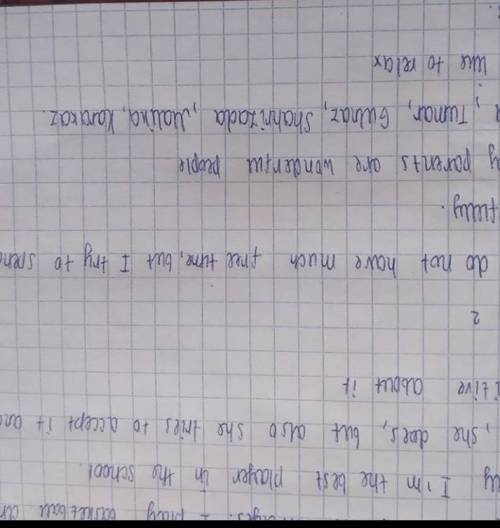 I play basketball an
I'm the best player in the school.
, she does, but also she tries to accept it and
itive about it
2
do not have much free time, but I try to spend
fully.
y parents are wonderful people
, Tumar, Gulnaz, Shahrizada, Malika, Karakaz.
like to relax